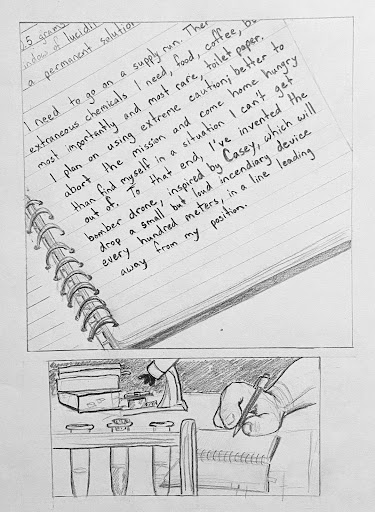 .5 grams
window of lucidi
a permanent solution
I need to go on a supply run. Ther
extraneous chemicals I need, food, coffee, b
most importantly and most rare, toilet paper.
I plan on using extreme caution; better to
abort the mission and come home hungry
than find myself in a situation I can't get
out of. To that end, I've invented the
bomber drone, inspired by Casey, which will
drop a small but loud incendiary device
every hundred meters, in a line leading
away from my position.